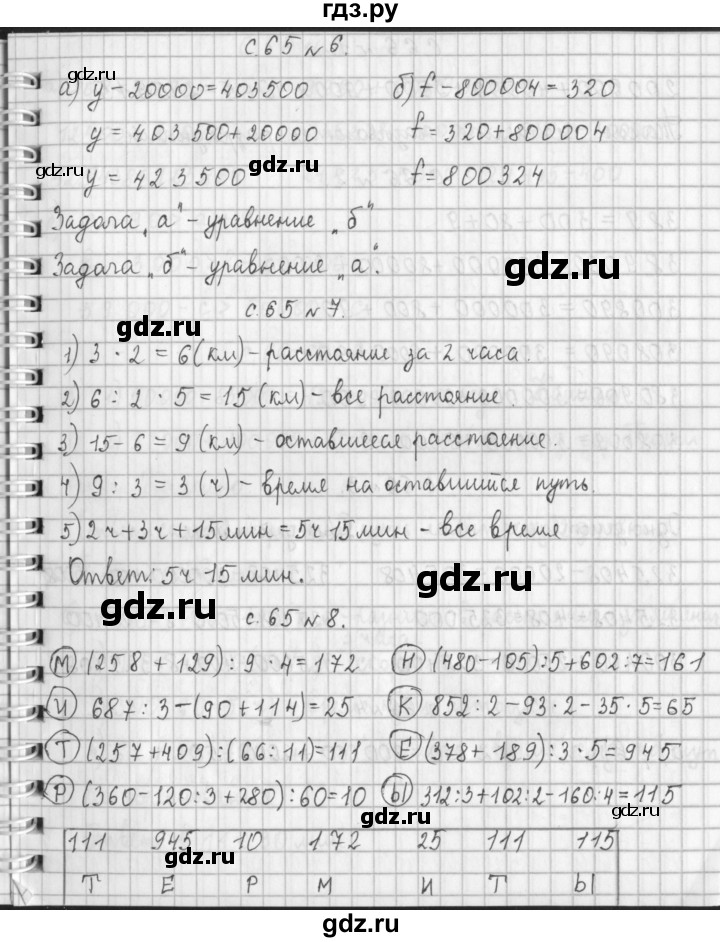 гдз.ру
с.65 №6.
а) у-20000=403500 б) f-800004=320
у=403500+20000 f=320+800004
gdz.ru gdz.ru
у=423500 f=800324
Задача „а" - уравнение „б"
Задача „б" - уравнение „а".
gdz.ru
с.65 №7.
gdz.ru
1) 3 · 2 = 6 (км) - расстояние за 2 часа.
2) 6 : 2 · 5 = 15 (км) - все расстояние.
3) 15-6=9 (км) - оставшееся расстояние.
4) 9 : 3 = 3 (ч) - время на оставшийся путь.
5) 2ч+3ч+15мин=5ч 15мин - все время
Ответ: 5ч 15 мин.
gdz.ru gdz.ru
с.65 №8.
М (258+129):9·4=172 Н (480-105):5+602:7=161
И 687:3-(90+114)=25 К 852:2-93·2-35·5=65
Т (257+409):(66:11)=111 Е (378+189):3·5=945
gdz.ru
Р (360-120:3+280):60=10 Ы 312:3+102:2-160:4=115
gdz.ru gdz.ru
111 945 10 172 25 111 115
gdz.ru
Т Е Р М И Т Ы
gdz.ru